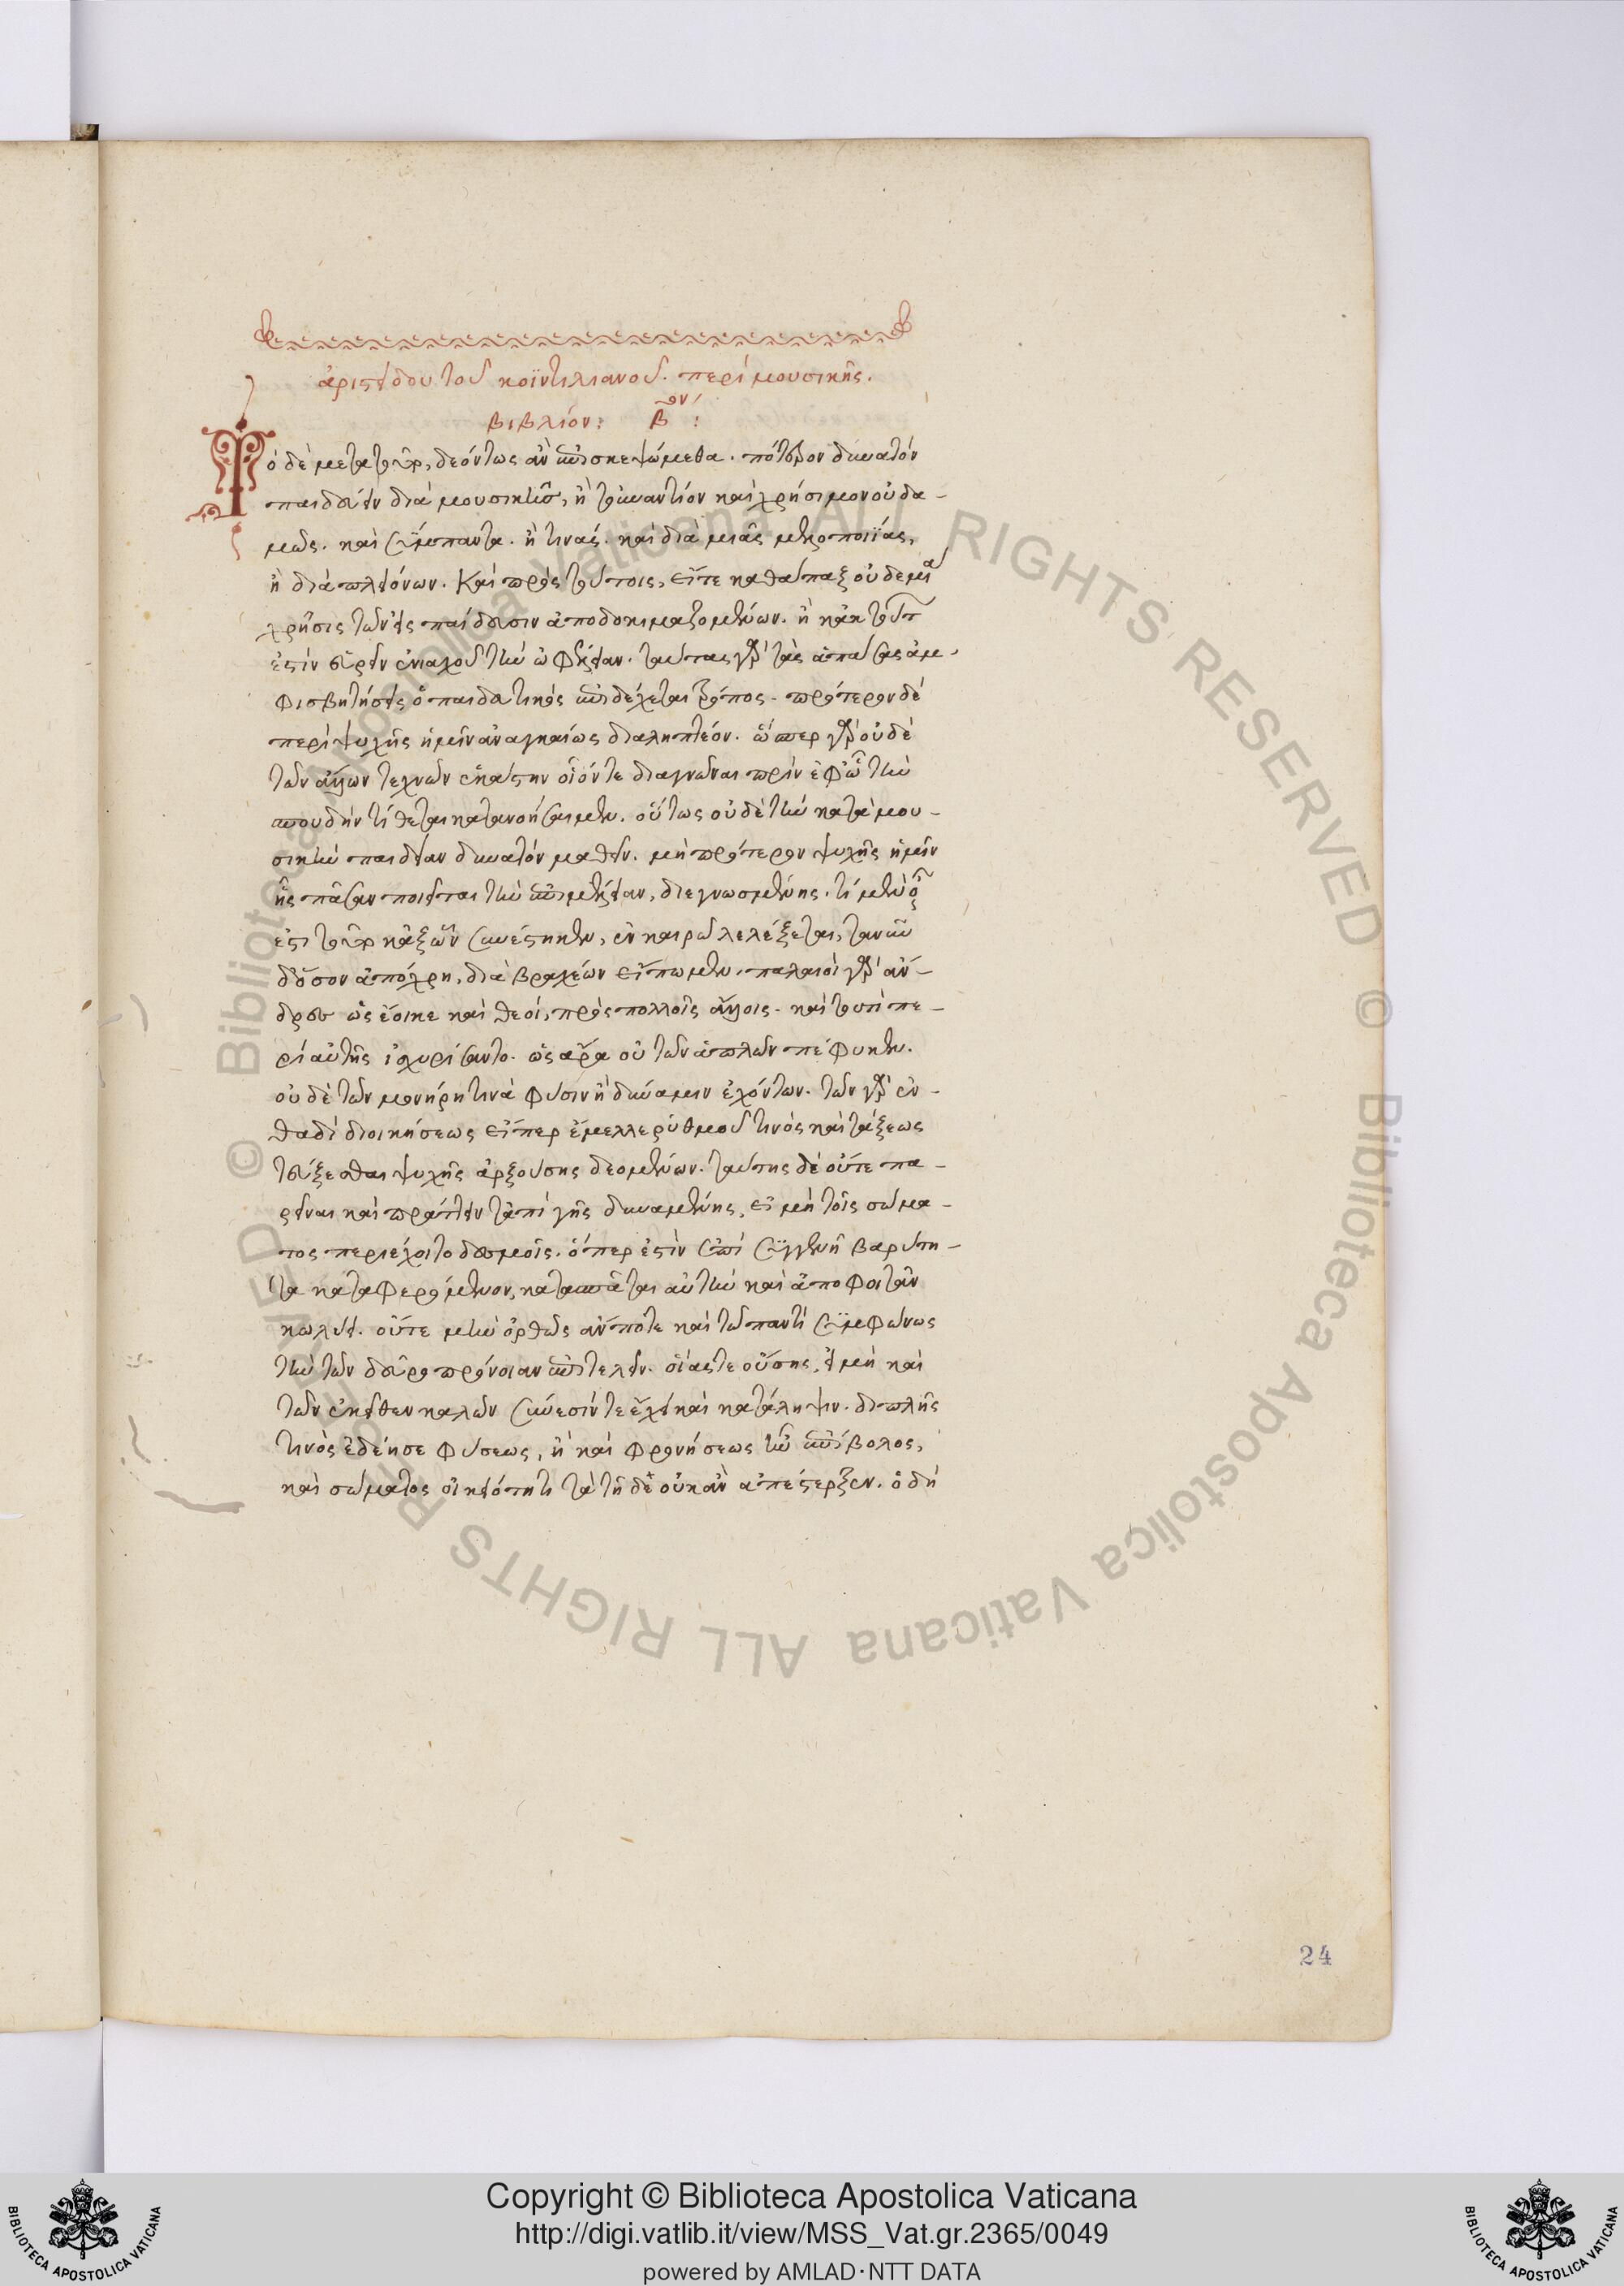 ἀριστείδου τοῦ κοϊντιλιανοῦ. περὶ μουσικῆς.
βιβλίον: β ον:
Τὸ δὲ μετὰ τοῦτο, δεόντως ἂν ἐπισκεψώμεθα. πότερον δυνατὸν
παιδεύειν διὰ μουσικῆς, ἢ τοὐναντίον καὶ χρήσιμον οὐδα-
μῶς. καὶ σύμπαντα. ἢ τινάς. καὶ διὰ μιᾶς μελοποιΐας,
ἢ διὰ πλειόνων. Καὶ πρὸς τούτοις, εἴτε καθάπαξ οὐδεμία
χρῆσις τῶν εἰς παίδευσιν ἀποδοκιμαζομένων. ἢ κἀκ τούτων
ἐστὶν εὑρεῖν ἐνιαχοῦ τὴν ὠφέλειαν. ταύτας γὰρ τὰς ἁπάσας ἀμ-
φισβητήσεις ὁ παιδευτικὸς ἐπιδέχεται τρόπος. πρότερον δὲ
περὶ ψυχῆς ἡμῖν ἀναγκαίως διαληπτέον. ὥσπερ γὰρ οὐδὲ
τῶν ἄλλων τεχνῶν ἑκάστην οἷόν τε διαγνῶναι πρὶν ἐφ' ὧ τὴν
σπουδὴν τίθεται κατανοήσαιμεν. οὕτως οὐδὲ τὴν κατὰ μου-
σικὴν παιδείαν δυνατὸν μαθεῖν. μὴ πρότερον ψυχῆς ἡμῖν
ἧς πᾶσαν ποιεῖται τὴν ἐπιμέλειαν, διεγνωσμένης. τί μὲν
ἐστι τοῦτο κἀξ ὧν συνέστηκεν, ἐν καιρῷ λελέξεται, τανῦν
δ' ὅσον ἀπόχρη, διὰ βραχέων εἴπωμεν. παλαιοὶ γὰρ ἄν-
δρες ὡς ἔοικε καὶ θεοί, πρὸς πολλοῖς ἄλλοις. καὶ τουτὶ πε-
ρὶ αὐτῆς ἰσχυρίσαντο. ὡς ἄρα οὐ τῶν ἁπλῶν πέφυκεν.
οὐδὲ τῶν μονήρη τινὰ φύσιν ἢ δύναμιν ἐχόντων. τῶν γὰρ ἐν-
θαδὶ διοικήσεως εἴπερ ἔμελλε ῥύθμοῦ τινὸς καὶ τάξεως
τεύξεσθαι ψυχῆς ἀρξούσης δεομένων. ταύτης δὲ οὔτε πα-
ρεῖναι καὶ πράττειν τἀπὶ γῆς δυναμένης, εἰ μὴ τοῖς σώμα-
τος περιέχοιτο δεσμοῖς. ὅπερ ἐστὶν ἐπὶ συγγενῆ βαρύτη-
τα καταφερόμενον, κατασπᾶται αὐτὴν καὶ ἀποφοιτᾶν
κωλύει. οὔτε μὴν ὀρθῶς ἄν ποτε καὶ τῷ παντὶ συμφώνως
τὴν τῶν δεῦρο πρόνοιαν ἐπιτελεῖν. οἵας τε οὔσης, εἰ μὴ καὶ
τῶν ἐκεῖθεν καλῶν σύνεσίν τε ἔχει καὶ κατάληψιν. διπλῆς
τινὸς ἐδέησε φύσεως, ἢ καὶ φρονήσεως ἐπήβολος,
καὶ σώματος οἰκειότητι τὰ τῇδε οὐκ ἂν ἀπέστερξεν. ὁ δὴ
24
Copyright © Biblioteca Apostolica Vaticana
http://digi.vatlib.it/view/MSS_Vat.gr.2365/0049
powered by AMLAD·NTT DATA
BIBLIOTECA APOSTOLICA VATICANA
BIBLIOTECA APOSTOLICA VATICANA
© Biblioteca Apostolica Vaticana ALL RIGHTS RESERVED © Biblioteca Apostolica Vaticana ALL RIGHTS RESERVED